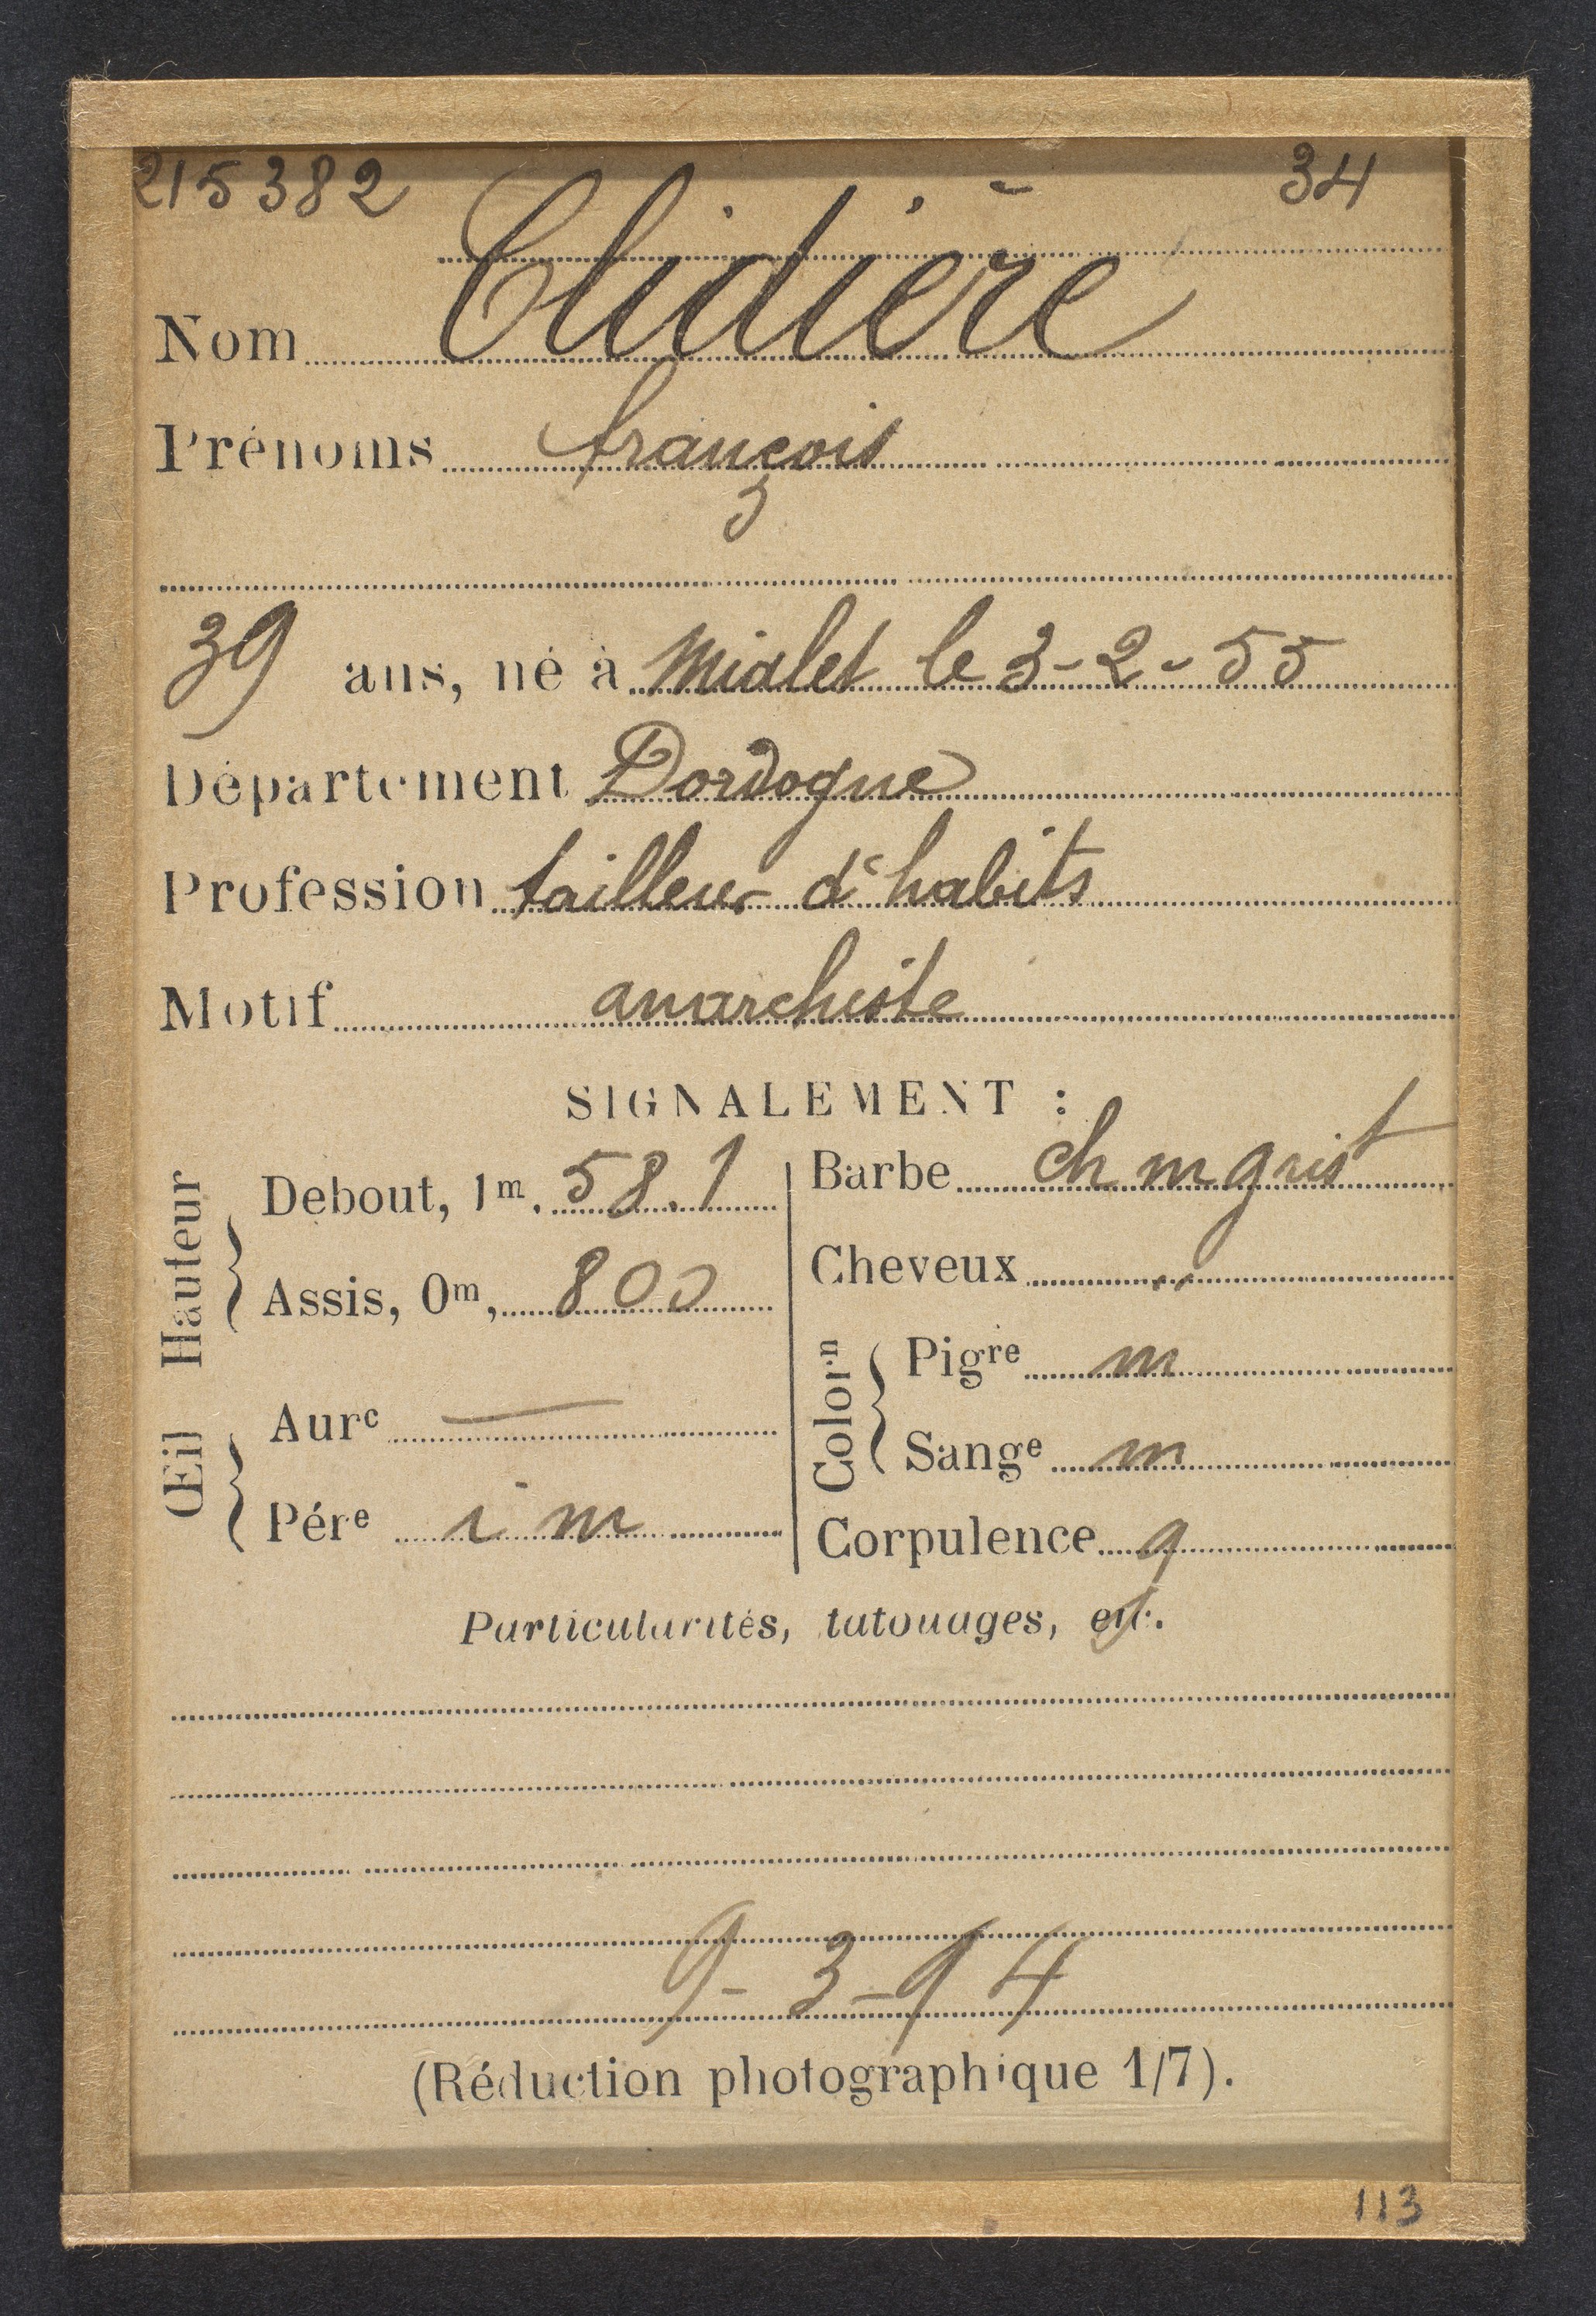 215382 34
Nom Clidière
Prénoms françois
39 ans, né à Mialet le 3-2-55
Département Dordogne
Profession tailleur d'habits
Motif anarchiste
SIGNALEMENT :
Hauteur
Debout, 1m. 58.1
Assis, 0m, 800
Œil
Aurᶜ —
Pérᵉ i m
Barbe ch m grist
Cheveux "
Colorⁿ
Pigʳᵉ m
Sangᵉ m
Corpulence g
Particularités, tatouages, etc.
9-3-94
(Réduction photographique 1/7).
113